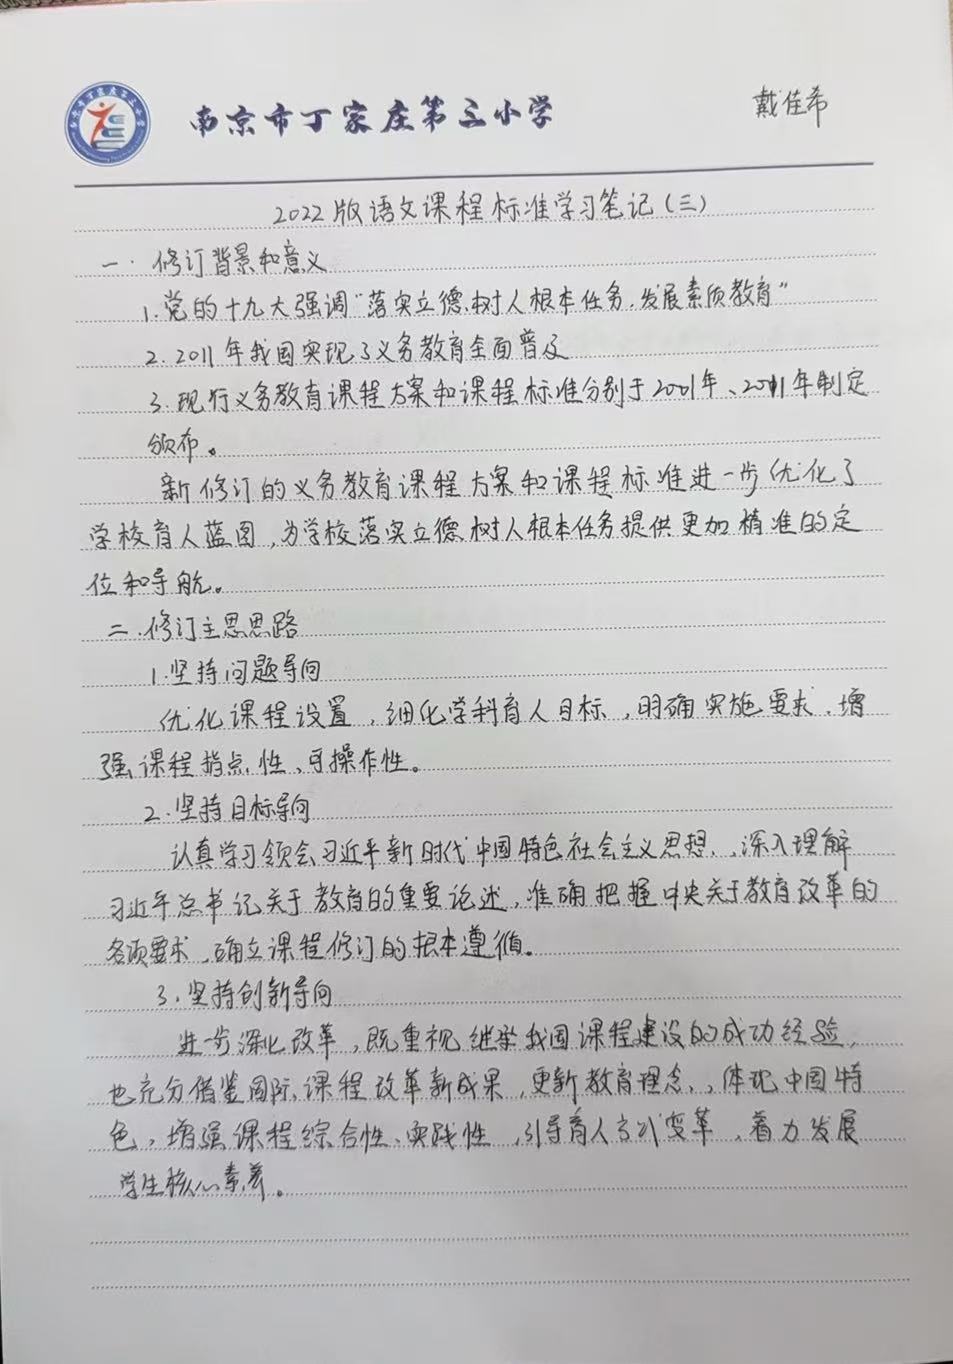 南京市丁家庄第三小学
戴佳希
2022版语文课程标准学习笔记(三)
一.修订背景和意义
1.党的十九大强调"落实立德树人根本任务,发展素质教育"
2.2011年我国实现了义务教育全面普及
3.现行义务教育课程方案和课程标准分别于2001年、2011年制定
颁布。
新修订的义务教育课程方案和课程标准进一步优化了
学校育人蓝图,为学校落实立德树人根本任务提供更加精准的定
位和导航。
二.修订主思思路
1.坚持问题导向
优化课程设置,细化学科育人目标,明确实施要求,增
强课程指点性、可操作性。
2.坚持目标导向
认真学习领会习近平新时代中国特色社会主义思想,,深入理解
习近平总书记关于教育的重要论述,准确把握中央关于教育改革的
各项要求,确立课程修订的根本遵循。
3.坚持创新导向
进一步深化改革,既重视继举我国课程建设的成功经验,
也充分借鉴国际课程改革新成果,更新教育理念,,体现中国特
色,增强课程综合性、实践性,引导育人方式变革,着力发展
学生核心素养。